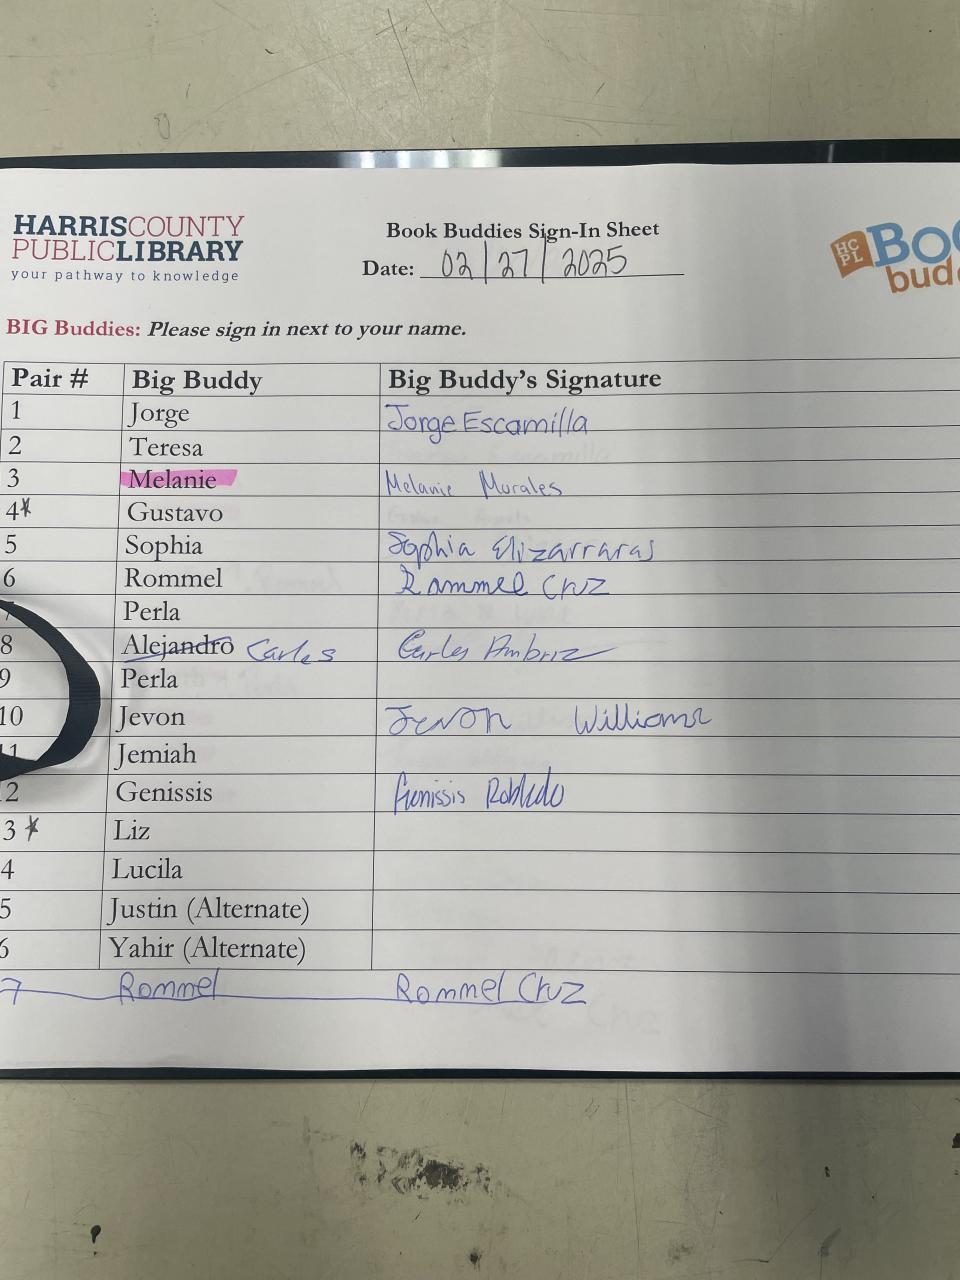 HARRISCOUNTY
PUBLICLIBRARY
your pathway to knowledge
Book Buddies Sign-In Sheet
Date: 02/27/2025
HCPL Boo
budd
BIG Buddies: Please sign in next to your name.
Pair # Big Buddy Big Buddy's Signature
1 Jorge Jorge Escamilla
2 Teresa
3 Melanie Melanie Morales
4* Gustavo
5 Sophia Sophia Elizarraras
6 Rommel Rommel Cruz
7 Perla
8 Alejandro Carlos Carlos Ambriz
9 Perla
10 Jevon Jevon Williams
11 Jemiah
2 Genissis Genissis Robledo
3 * Liz
4 Lucila
5 Justin (Alternate)
6 Yahir (Alternate)
7 Rommel Rommel Cruz